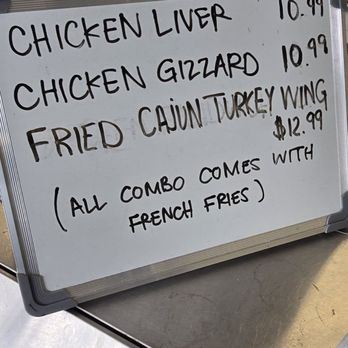 CHICKEN LIVER 10.99
CHICKEN GIZZARD 10.99
FRIED CAJUN TURKEY WING
$12.99
(ALL COMBO COMES WITH
FRENCH FRIES)